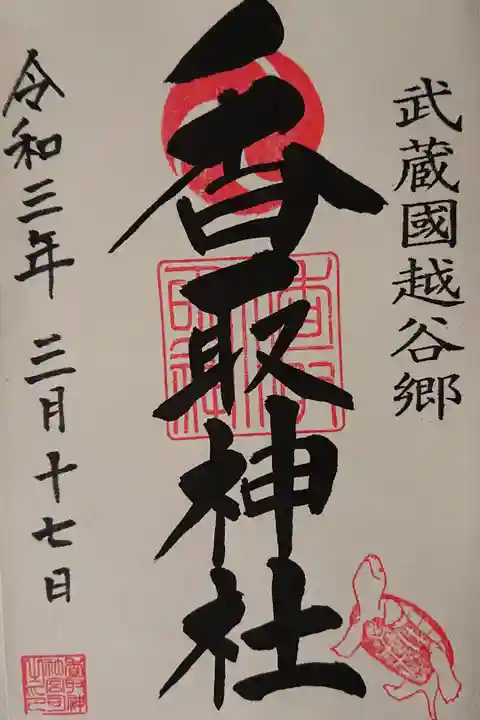 武蔵國越谷郷
香取神社
令和三年 三月十七日